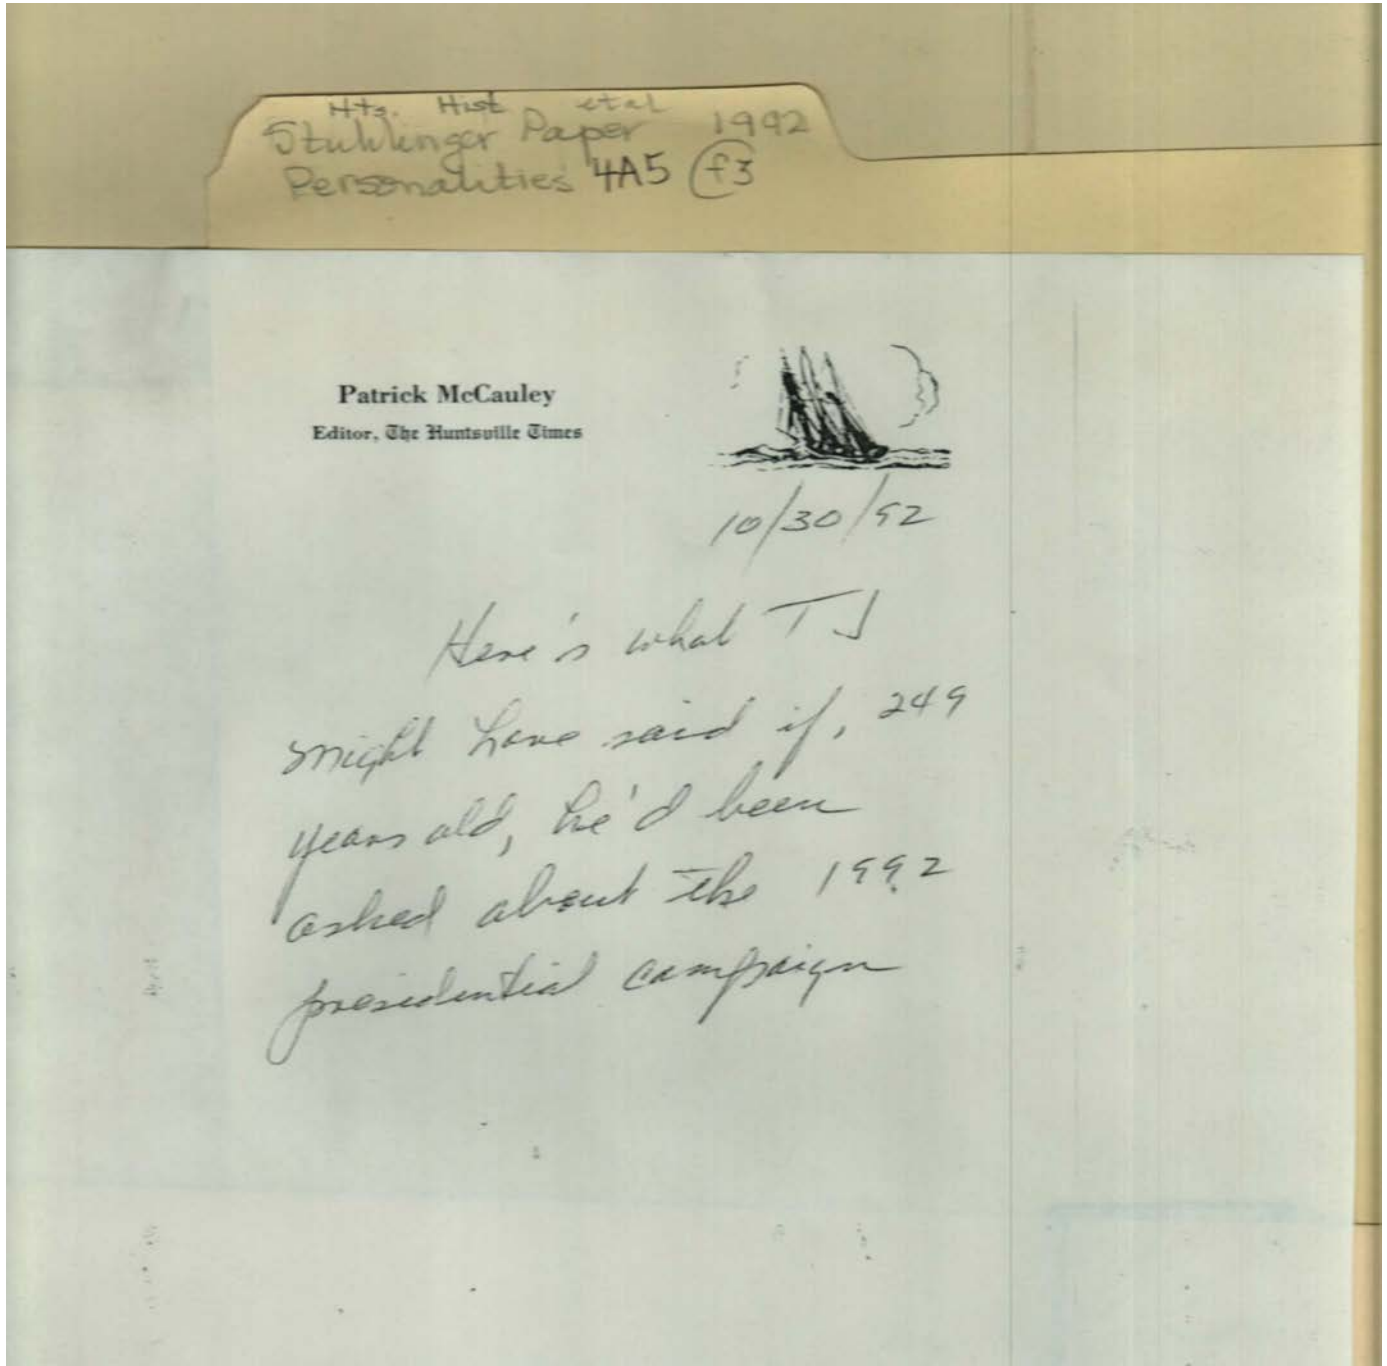 Hts. Hist et al
Stuhlinger Paper 1992
Personalities 4A5 f3
Patrick McCauley
Editor, The Huntsville Times
10/30/92
Here's what TJ
might have said if, 249
years old, he'd been
asked about the 1992
presidential campaign